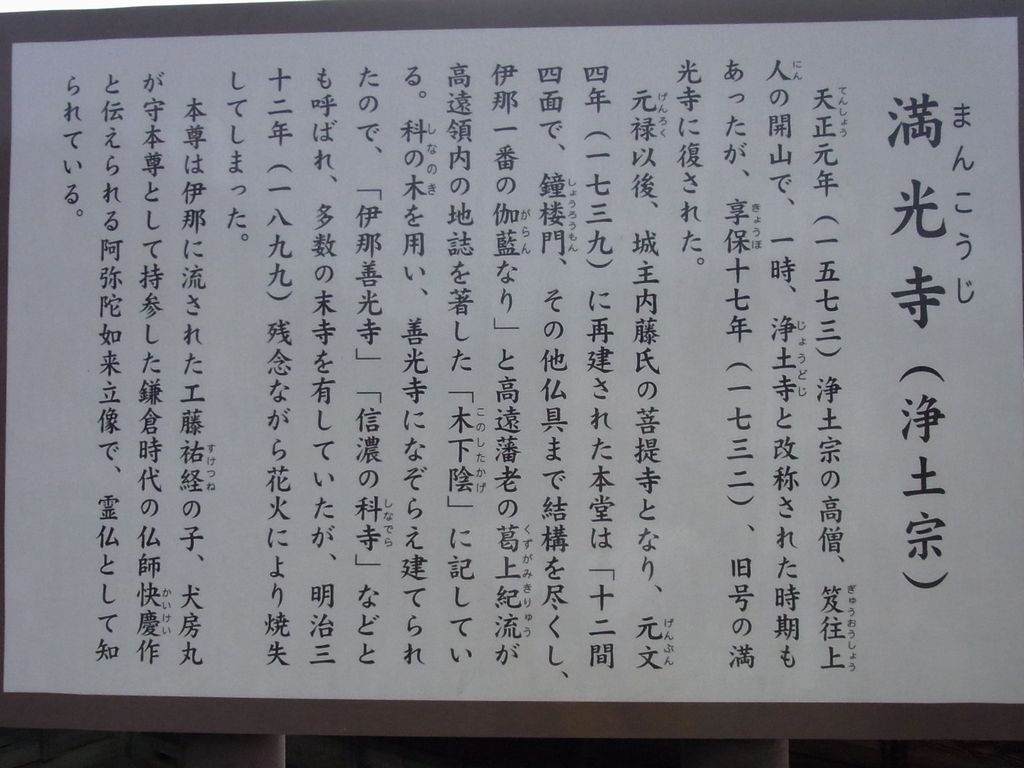 満光寺（浄土宗）
まんこうじ
天正元年（一五七三）浄土宗の高僧、笈往上
てんしょう
ぎゅうおうしょう
人の開山で、一時、浄土寺と改称された時期も
にん
じょうどじ
あったが、享保十七年（一七三二）、旧号の満
きょうほ
光寺に復された。
元禄以後、城主内藤氏の菩提寺となり、元文
げんろく
げんぶん
四年（一七三九）に再建された本堂は「十二間
四面で、鐘楼門、その他仏具まで結構を尽くし、
しょうろうもん
伊那一番の伽藍なり」と高遠藩老の葛上紀流が
がらん
くずがみきりゅう
高遠領内の地誌を著した「木下陰」に記してい
このしたかげ
る。科の木を用い、善光寺になぞらえ建てられ
しなのき
たので、「伊那善光寺」「信濃の科寺」などと
しなでら
も呼ばれ、多数の末寺を有していたが、明治三
十二年（一八九九）残念ながら花火により焼失
してしまった。
本尊は伊那に流された工藤祐経の子、犬房丸
すけつね
が守本尊として持参した鎌倉時代の仏師快慶作
かいけい
と伝えられる阿弥陀如来立像で、霊仏として知
られている。